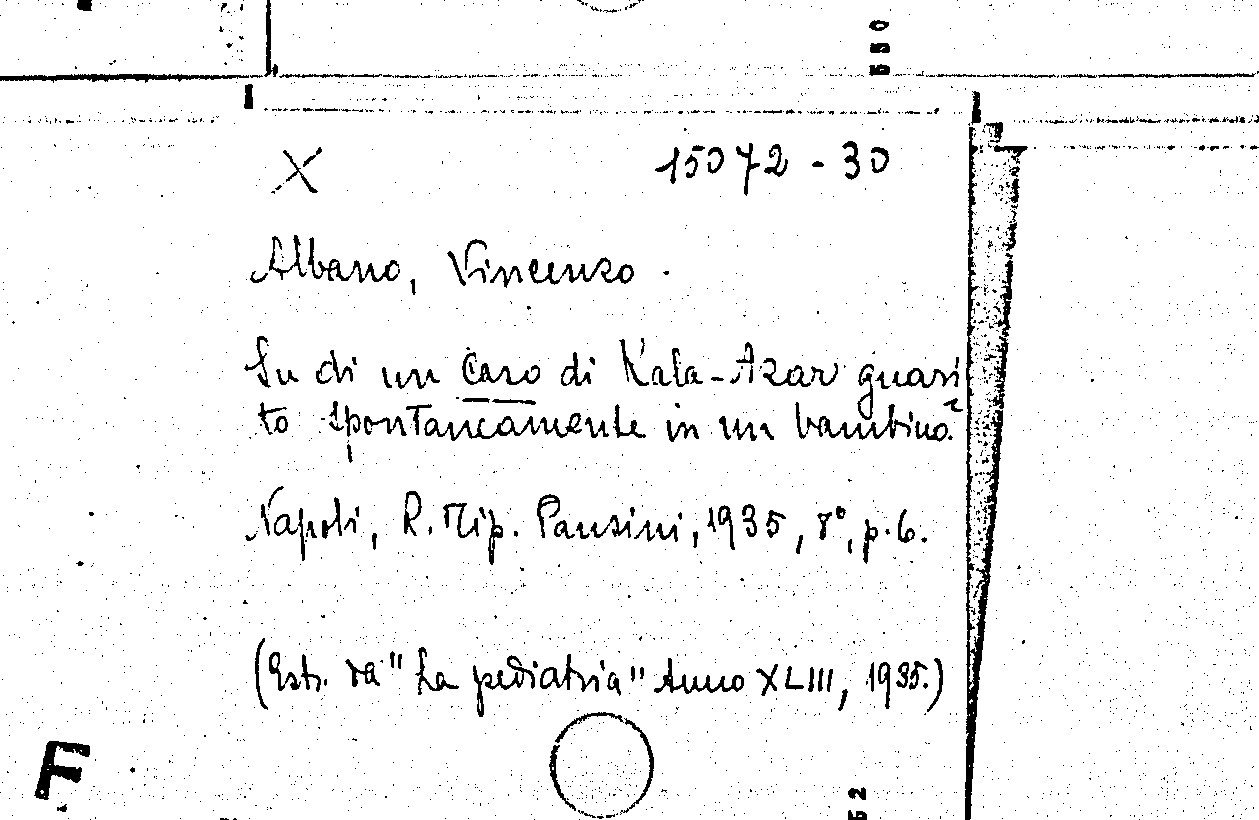 550
X 15072 - 30
Albano, Vincenzo.
Su di un caso di Kala-Azar guari
to spontaneamente in un bambino.
Napoli, R. Tip. Pansini, 1935, 8°, p. 6.
(Estr. da "La pediatria" Anno XLIII, 1935.)
F
52